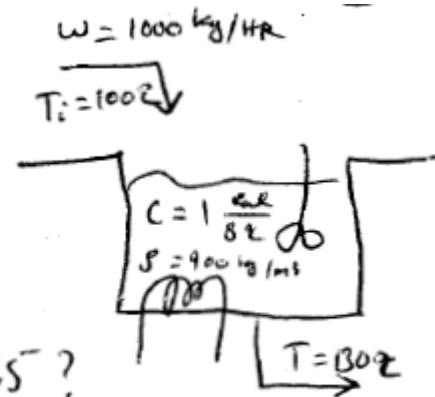 W = 1000 kg/HR
Ti = 100℃
C = 1 cal/g℃
ρ = 900 kg/m3
5 ?
T = 130℃